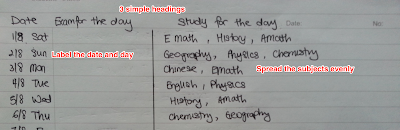 3 simple headings
Date Exam for the day Study for the day Date No:
1/8 Sat E math, History, Amath
2/8 Sun Label the date and day Geography, Physics, Chemistry
3/8 Mon Chinese, Emath Spread the subjects evenly
4/8 Tue English, Physics
5/8 Wed History, Amath
6/8 Thu Chemistry, Geography